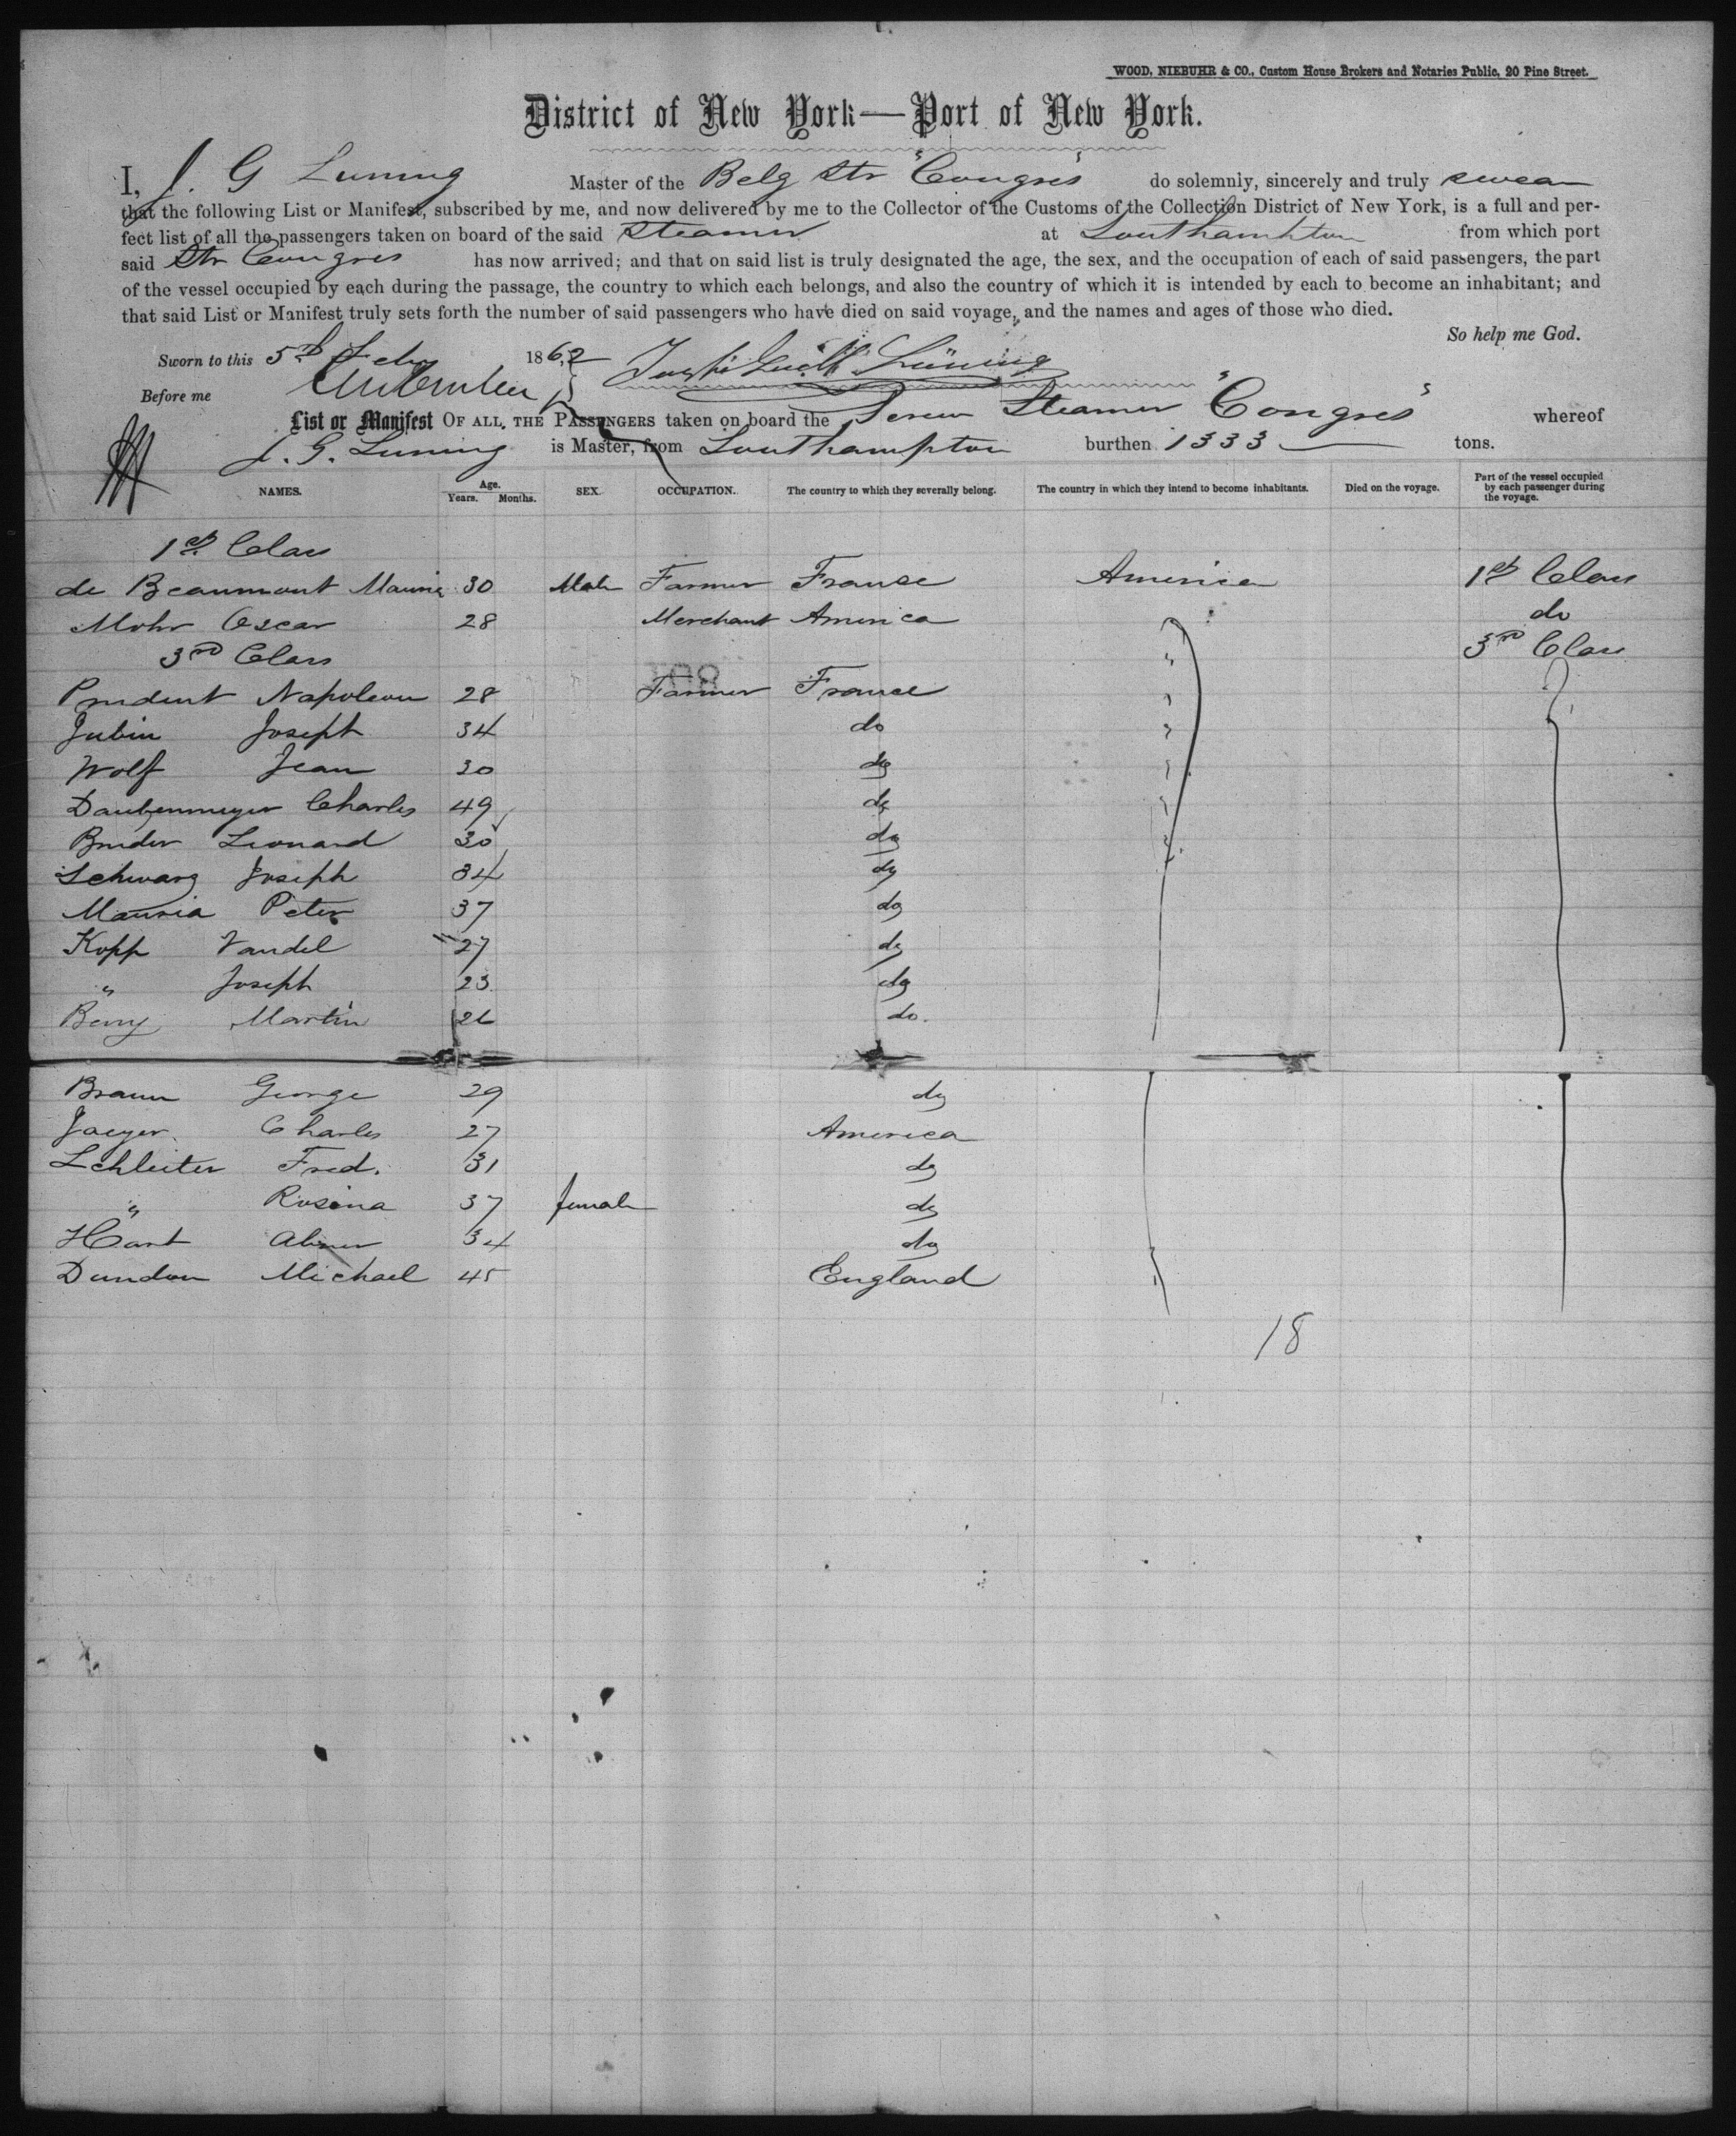 WOOD, NIEBUHR & CO., Custom House Brokers and Notaries Public, 20 Pine Street.
District of New York—Port of New York.
I, J. G Luning Master of the Belg Str "Congres" do solemnly, sincerely and truly swear
that the following List or Manifest, subscribed by me, and now delivered by me to the Collector of the Customs of the Collection District of New York, is a full and per-
fect list of all the passengers taken on board of the said Steamer at Southampton from which port
said Str Congres has now arrived; and that on said list is truly designated the age, the sex, and the occupation of each of said passengers, the part
of the vessel occupied by each during the passage, the country to which each belongs, and also the country of which it is intended by each to become an inhabitant; and
that said List or Manifest truly sets forth the number of said passengers who have died on said voyage, and the names and ages of those who died.
So help me God.
Sworn to this 5th Feby 1862 Lüning
Before me
List or Manifest OF ALL THE PASSENGERS taken on board the Screw Steamer "Congres" whereof
J. G. Luning is Master, from Southampton burthen 1333 tons.
NAMES. Age. Years. Months. SEX. OCCUPATION. The country to which they severally belong. The country in which they intend to become inhabitants. Died on the voyage. Part of the vessel occupied by each passenger during the voyage.
1st Class
de Beaumont Maurice 30 Male Farmer France America 1st Class
Mohr Oscar 28 Merchant America " do
3rd Class " 3rd Class
Prudent Napoleon 28 Farmer France "
Jubin Joseph 34 do "
Wolf Jean 30 do "
Daubenmeyer Charles 49 do "
Bruder Leonard 30 do "
Schwarz Joseph 34 do
Mauria Peter 37 do
Kopp Vandel 27 do
" Joseph 23 do
Berry Martin 26 do.
Braun George 29 do
Jaeger Charles 27 America
Schleiter Fred. 31 do
" Rosina 37 female do
Hart Abner 34 do
Dundon Michael 45 England
18